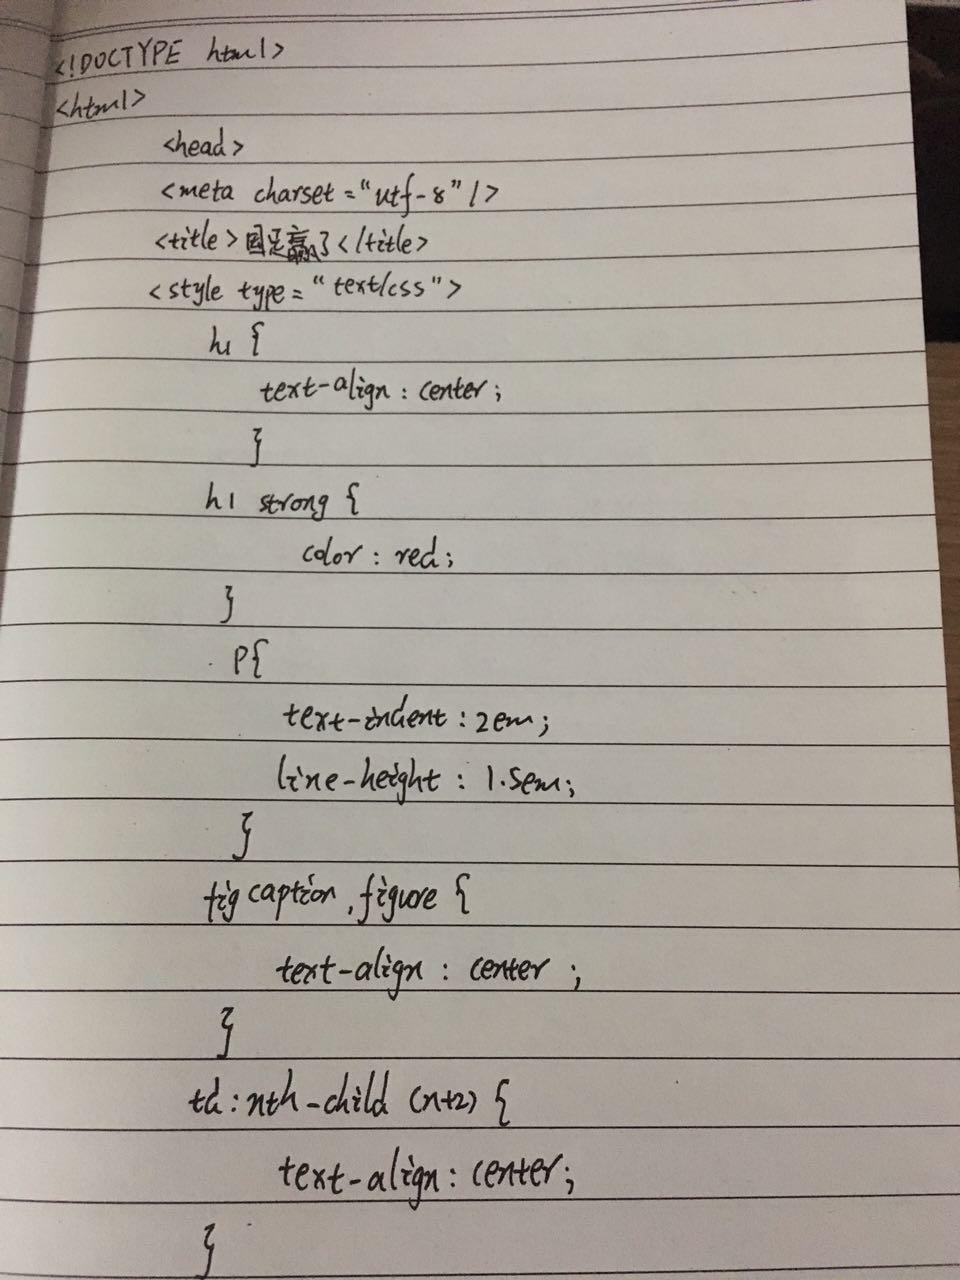 <!DOCTYPE html>
<html>
<head>
<meta charset="utf-8"/>
<title>国足赢了</title>
<style type="text/css">
h1 {
text-align: center;
}
h1 strong {
color: red;
}
p{
text-indent: 2em;
line-height: 1.5em;
}
figcaption, figure {
text-align: center;
}
td:nth-child (n+2) {
text-align: center;
}